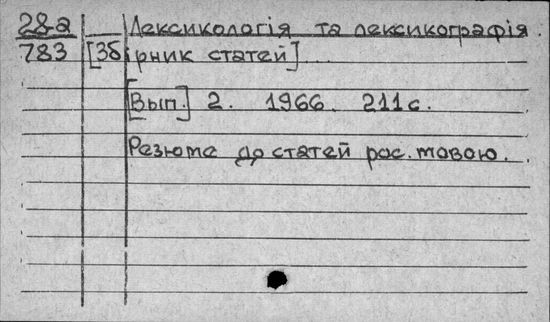 28-а Лексикологія та лексикографія.
783 [Збірник статей]...
[Вып.] 2. 1966. 211 с.
Резюме до статей рос. мовою.